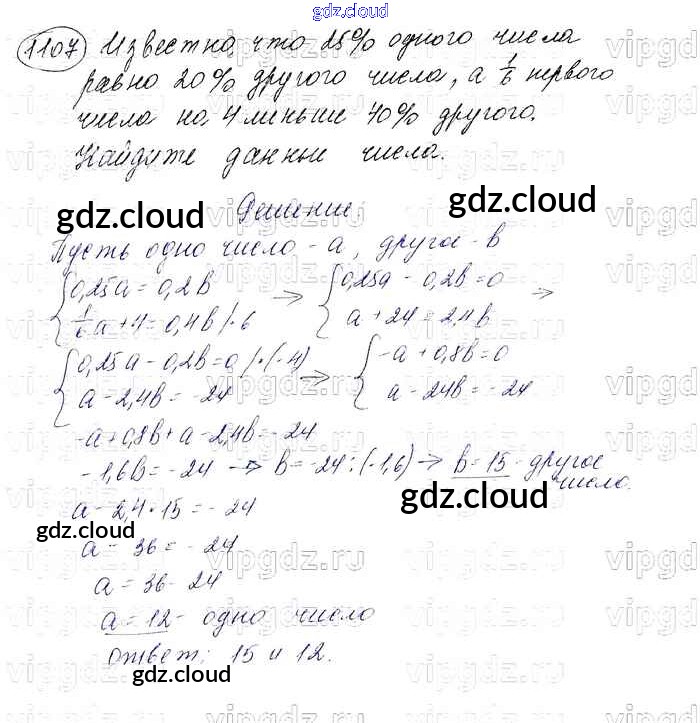 gdz.cloud
1107 Известно, что 25% одного числа
равно 20% другого числа, а 1/6 первого
числа на 4 меньше 40% другого.
Найдите данные числа.
gdz.cloud
Решение:
gdz.cloud
Пусть одно число - a, другое - b
{0,25a = 0,2b → {0,25a - 0,2b = 0 →
{1/6a + 4 = 0,4b /·6 {a + 24 = 2,4b
{0,25a - 0,2b = 0 /·(-4) → {-a + 0,8b = 0
{a - 2,4b = -24 {a - 24b = -24
-a + 0,8b + a - 2,4b = -24
-1,6b = -24 → b = -24 : (-1,6) → b = 15 - другое
число.
a - 2,4·15 = -24
gdz.cloud
gdz.cloud
a - 36 = -24
a = 36 - 24
a = 12 - одно число
ответ: 15 и 12.
gdz.cloud
vipgdz.ru